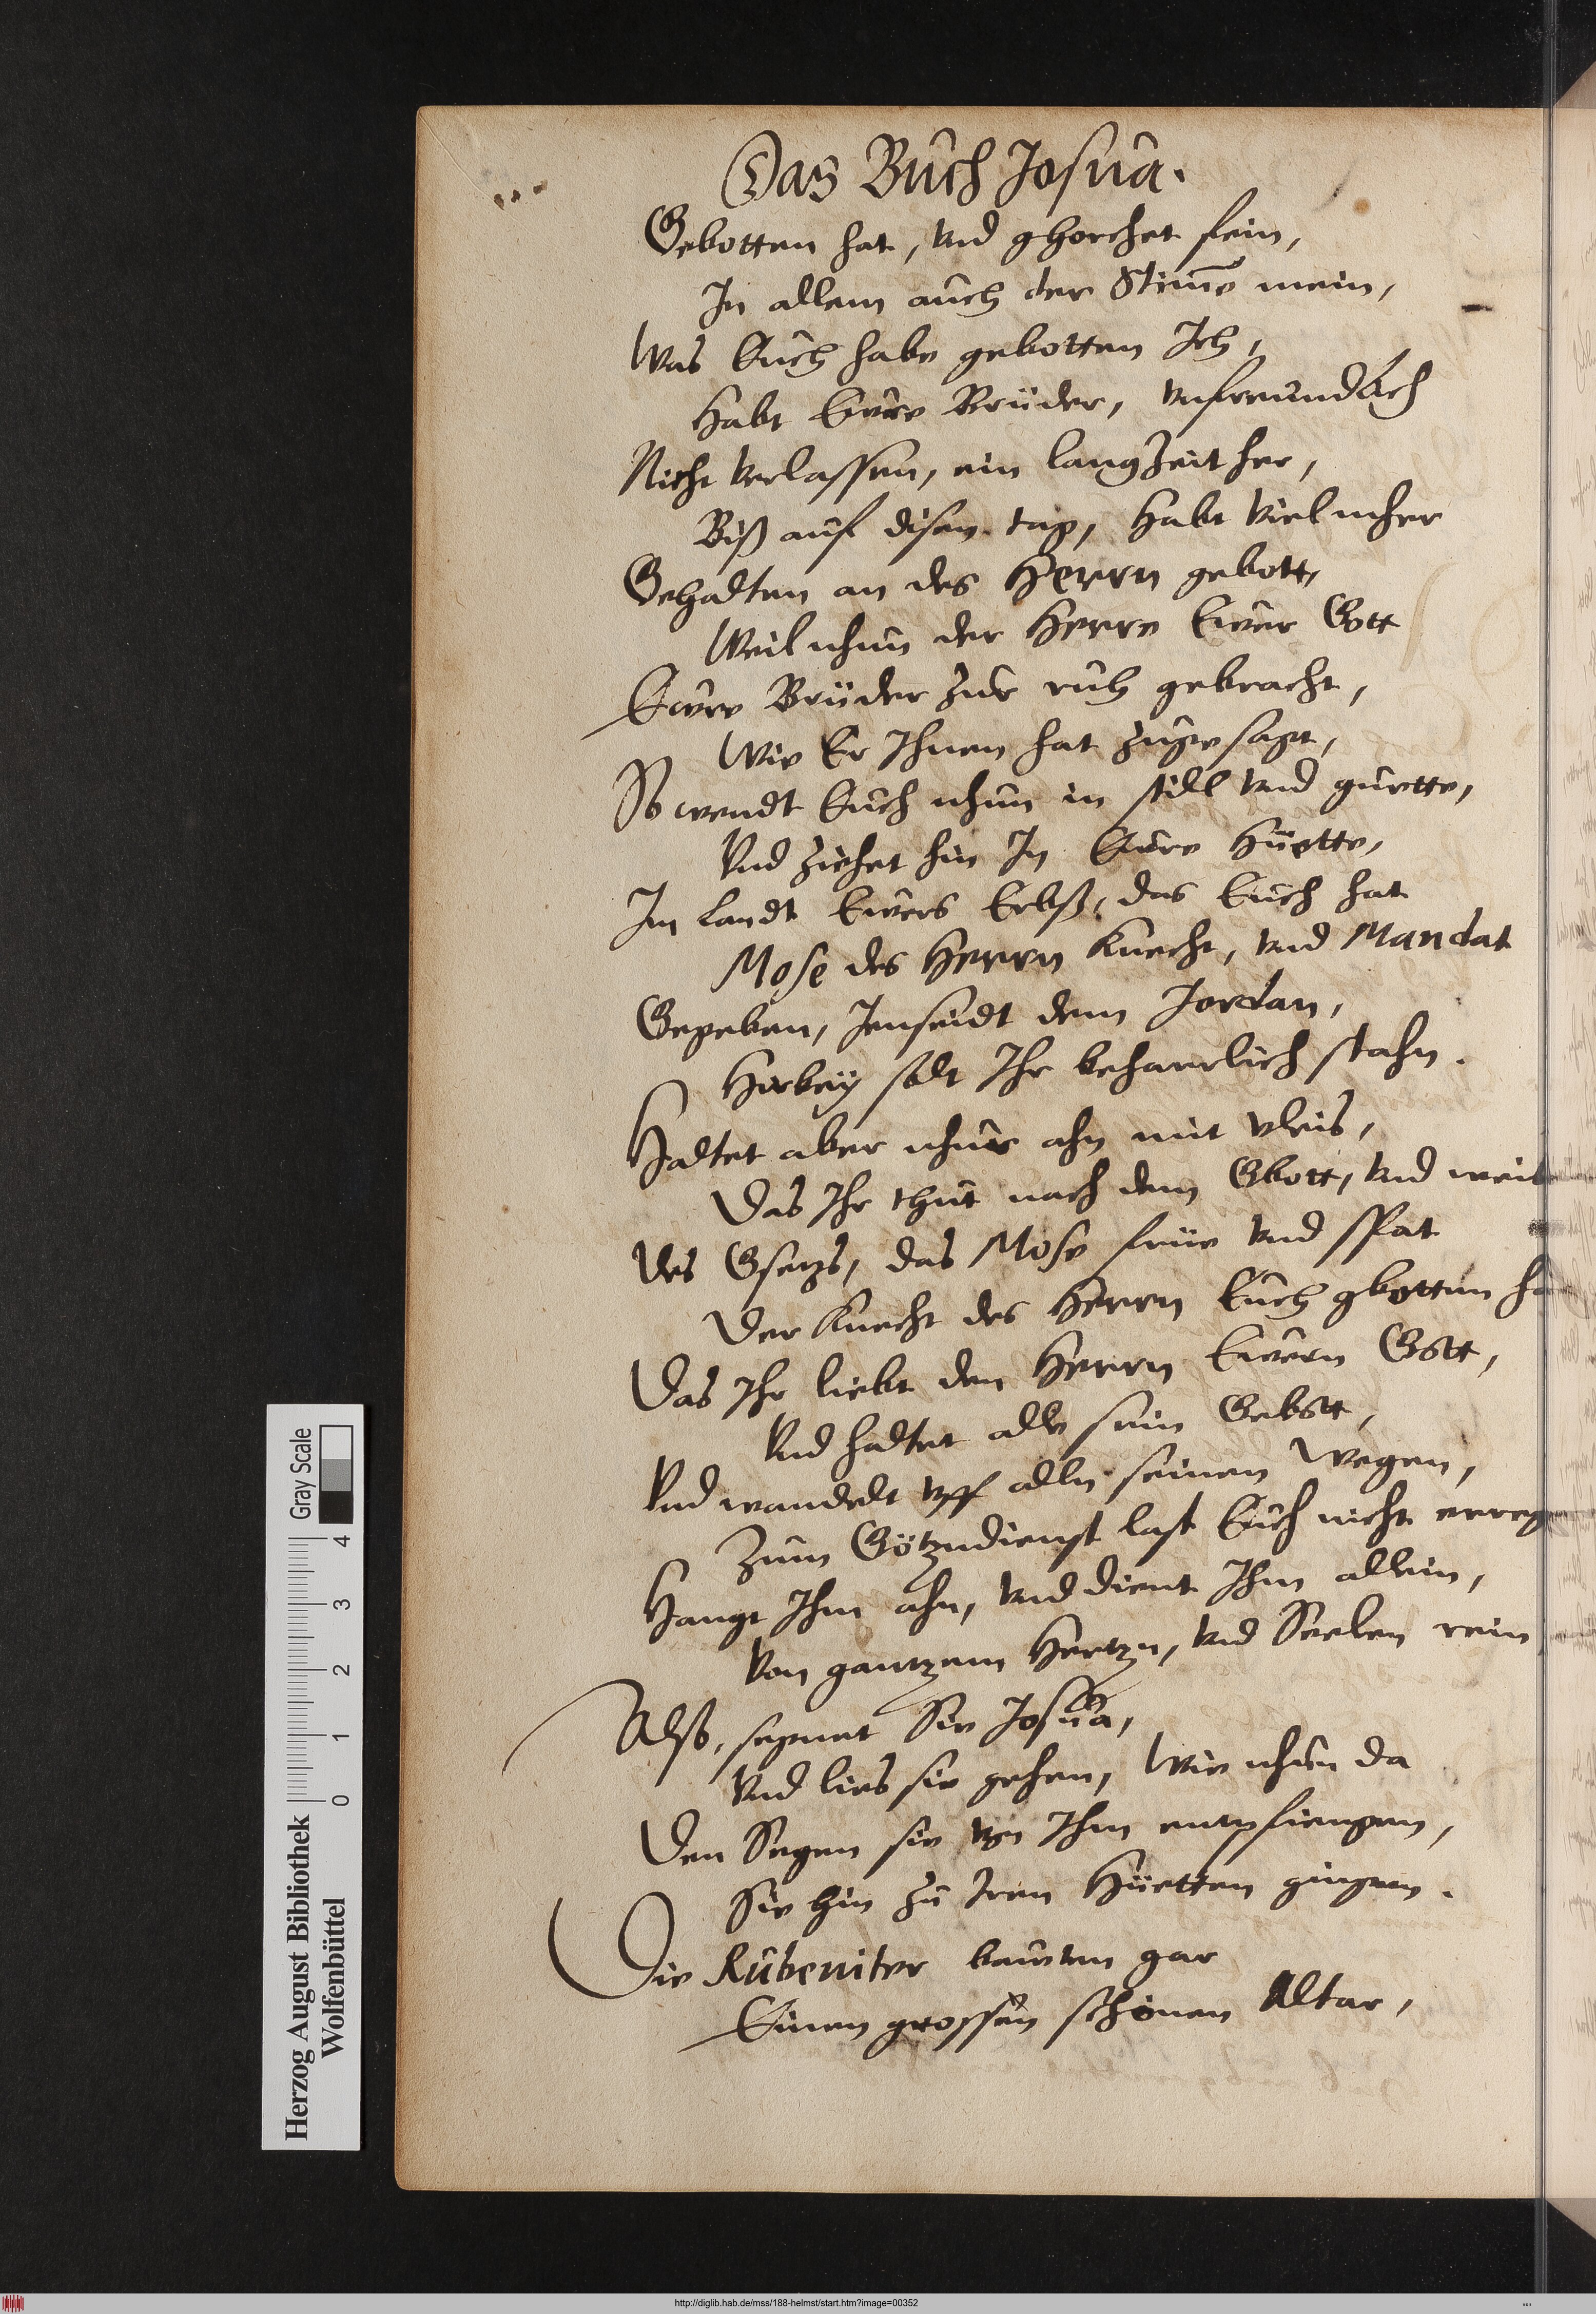 Das Buch Josua.
Gebotten hat, vnd ghorchet fein,
In allem auch der Stim̃e mein,
Was Euch habe gebotten Ich,
Habt Ewre Brüder, vnfreundlich
Nicht verlassen, ein lang Zeit her,
Biß auf disen tag, habt viel mher
Gehalten an des Herrn gebott,
Weil nhun der Herre Ewer Gott
Ewre Brüder zur ruh gebracht,
Wie Er Ihnen hat zugesagt,
So wendt Euch nhun in still vnd guette,
Vnd ziehet hin In Ewre Huette,
Im Landt Ewers Erbß, das Euch hat
Mose des Herrn Knecht, vnd Mandat
Gegeben, Jenseidt dem Jordan,
Hirbey solt Ihr beharrlich stahn.
Haltet aber nhur ahn mit vleis,
Das Ihr thut nach dem Gbott, vnd weis
Des Gsetzs, das Mose früe vnd spat
Der Knecht des Herrn Euch gbotten ha
Das Ihr liebt den Herrn Ewern Gott,
Vnd haltet alle sein Gebott,
Vnd wandelt vff alln seinen Wegen,
Zum Götzndienst last Euch nicht erreg
Hangt Ihm ahn, vnd dient Ihm allein,
Von gantzem Hertzn, vnd Seelen rein
Also, segnet Sie Josua,
Vnd lies sie gehen, Wie nhun da
Den Segen sie von Ihm entpfiengen,
Sie hin zu Iren Hüetten gingen.
Die Rubeniter bauten gar
Einen grossen schönen Altar,
Herzog August Bibliothek
Wolfenbüttel
0 1 2 3 4
Gray Scale
http://diglib.hab.de/mss/188-helmst/start.htm?image=00352